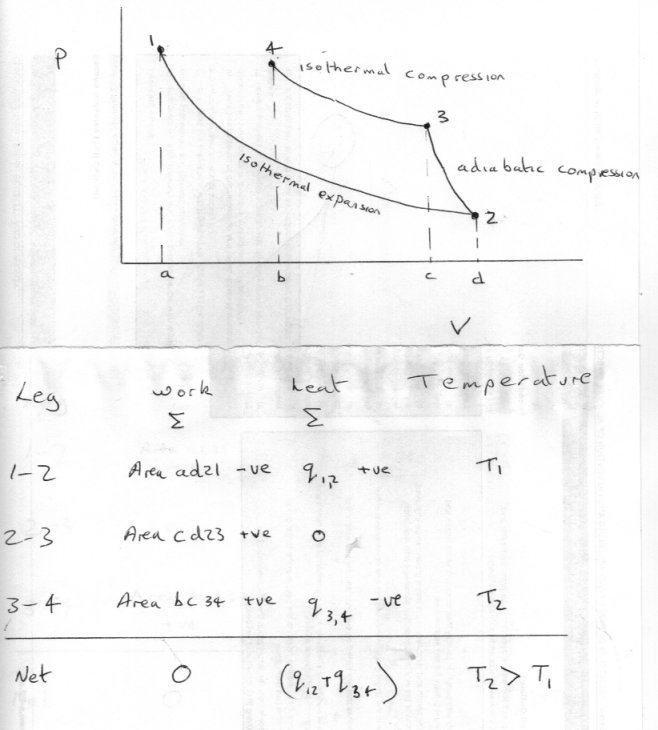 P
1
4
isothermal compression
3
adiabatic compression
isothermal expansion
2
a b c d
V
Leg work heat Temperature
Σ Σ
1-2 Area ad21 -ve q1,2 +ve T1
2-3 Area cd23 +ve 0
3-4 Area bc34 +ve q3,4 -ve T2
Net 0 (q12+q34) T2 > T1